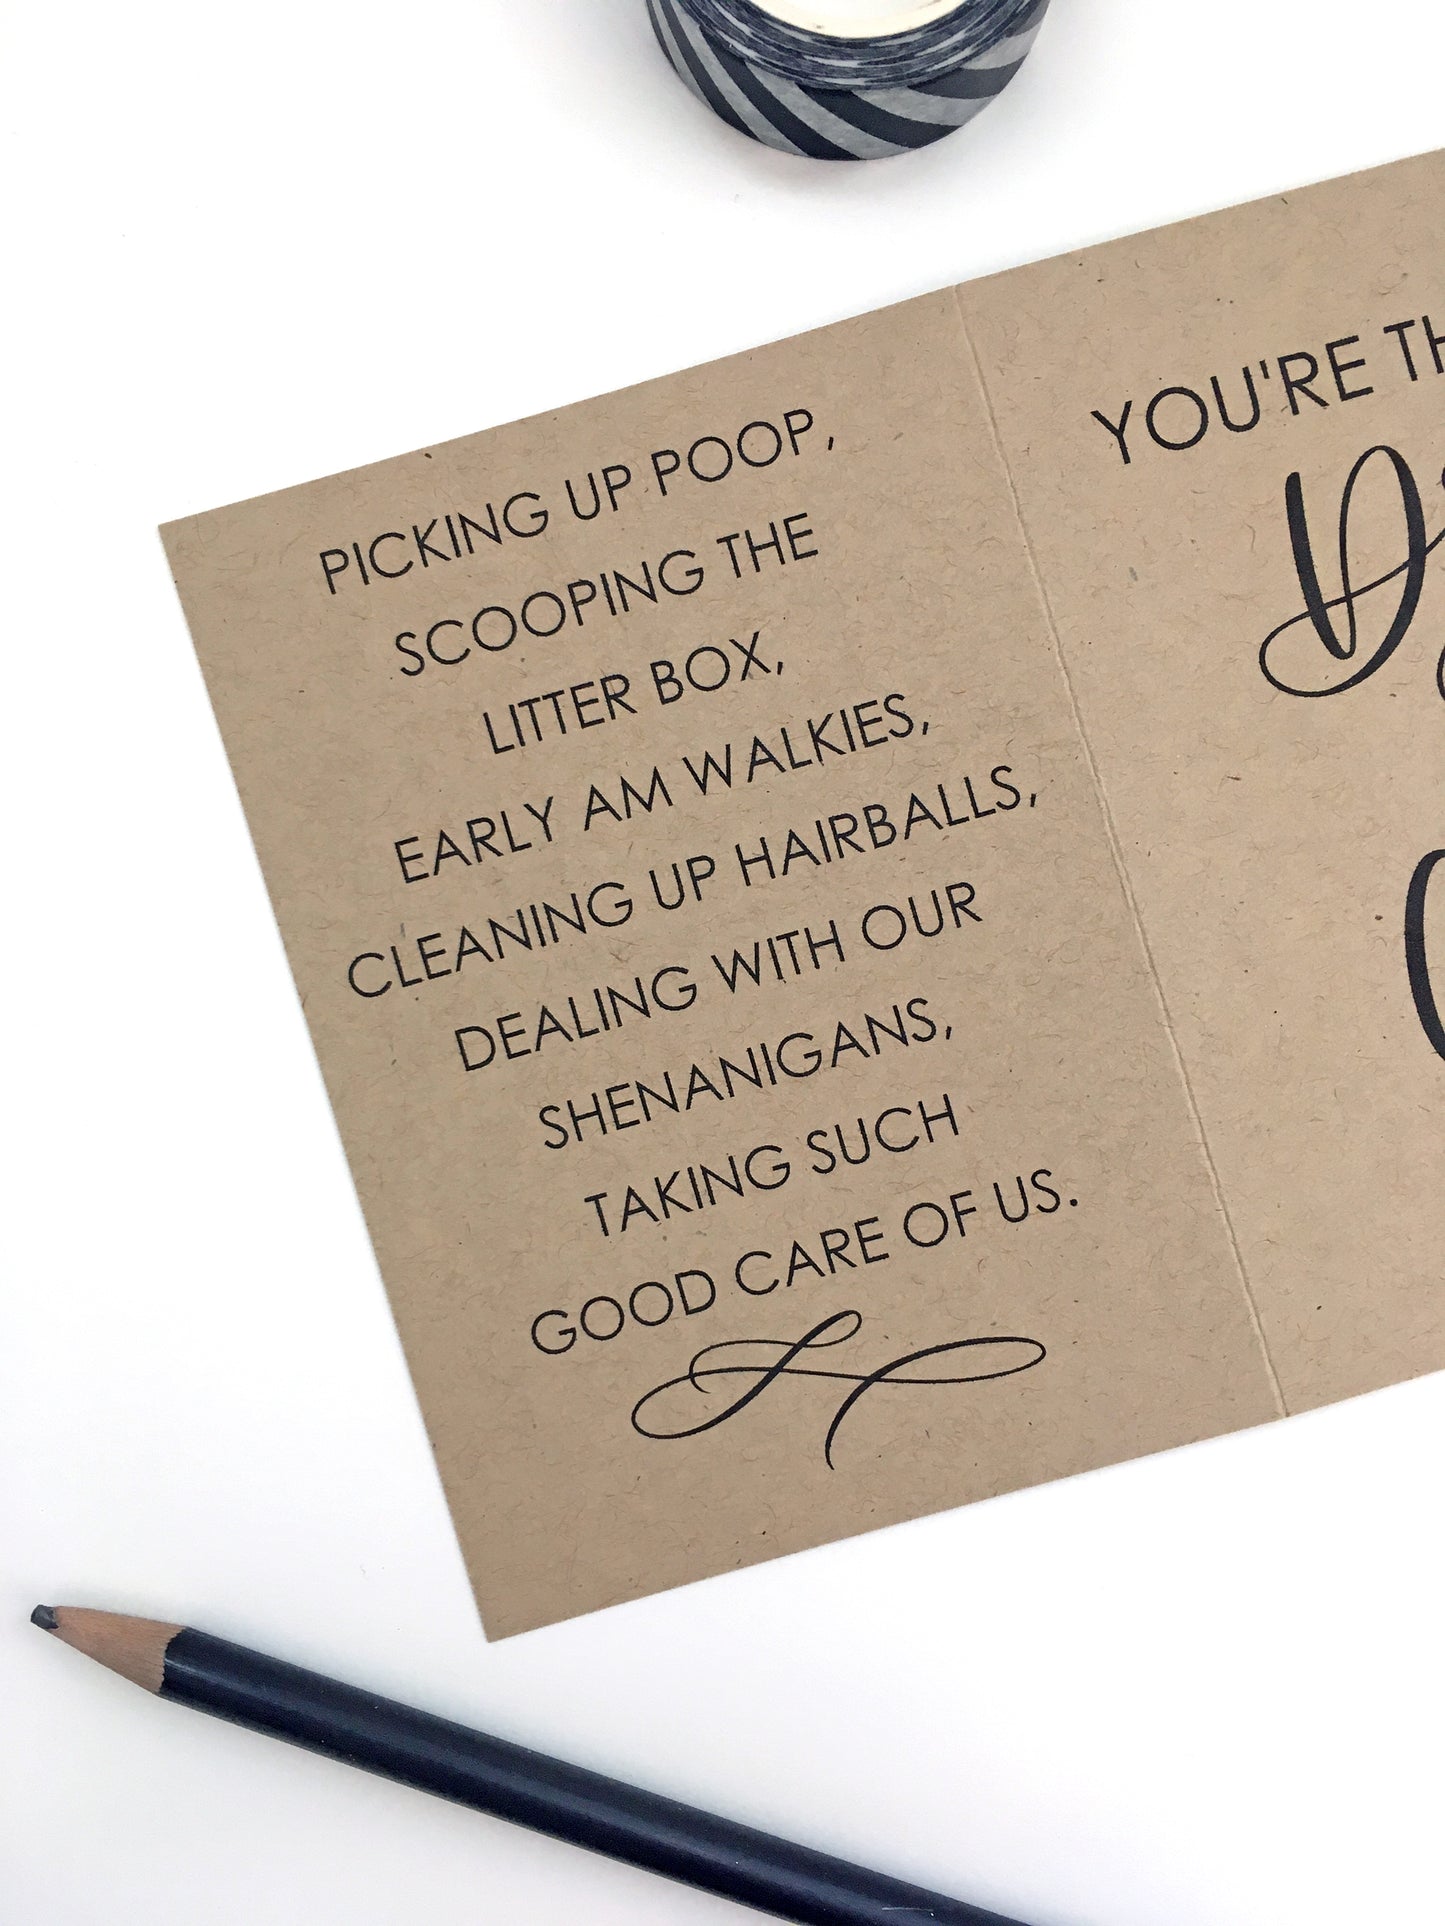 PICKING UP POOP,
SCOOPING THE
LITTER BOX,
EARLY AM WALKIES,
CLEANING UP HAIRBALLS,
DEALING WITH OUR
SHENANIGANS,
TAKING SUCH
GOOD CARE OF US.
YOU'RE